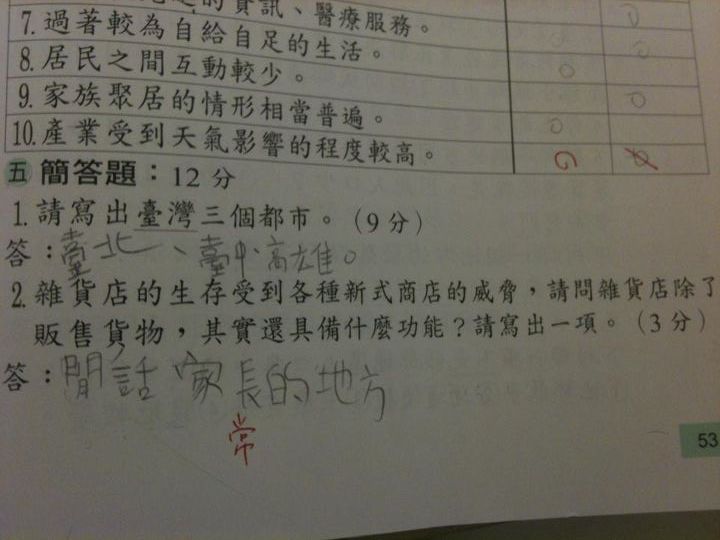 的資訊、醫療服務。
7.過著較為自給自足的生活。
8.居民之間互動較少。
9.家族聚居的情形相當普遍。
10.產業受到天氣影響的程度較高。
五 簡答題：12分
1.請寫出臺灣三個都市。（9分）
答：臺北、臺中、高雄。
2.雜貨店的生存受到各種新式商店的威脅，請問雜貨店除了
販售貨物，其實還具備什麼功能？請寫出一項。（3分）
答：閒話家長的地方
常
53